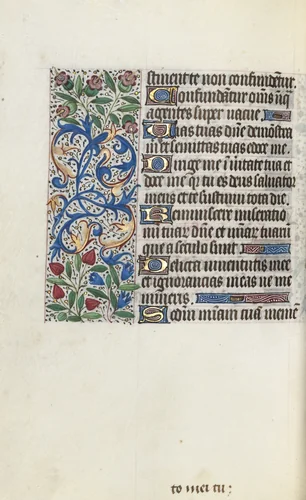 sinent te non confundent̃.
Confundantur om̃s iniq̃
agentes super vacue.
Uias tuas dñe demõstra
m̃ et semitas tuas edoce me.
Dirige me ĩ ueritate tua et
doce me q̃ tu es deus saluator
meus et te sustinui tota die.
Reminiscere miseratio
num tuar̃ dñe et miar̃ tuarũ
que a seculo sunt.
Delicta iuuentutis mee
et ignorantias meas ne me
mineris.
Scdm̃ miam̃ tuã meme
to mei tu: